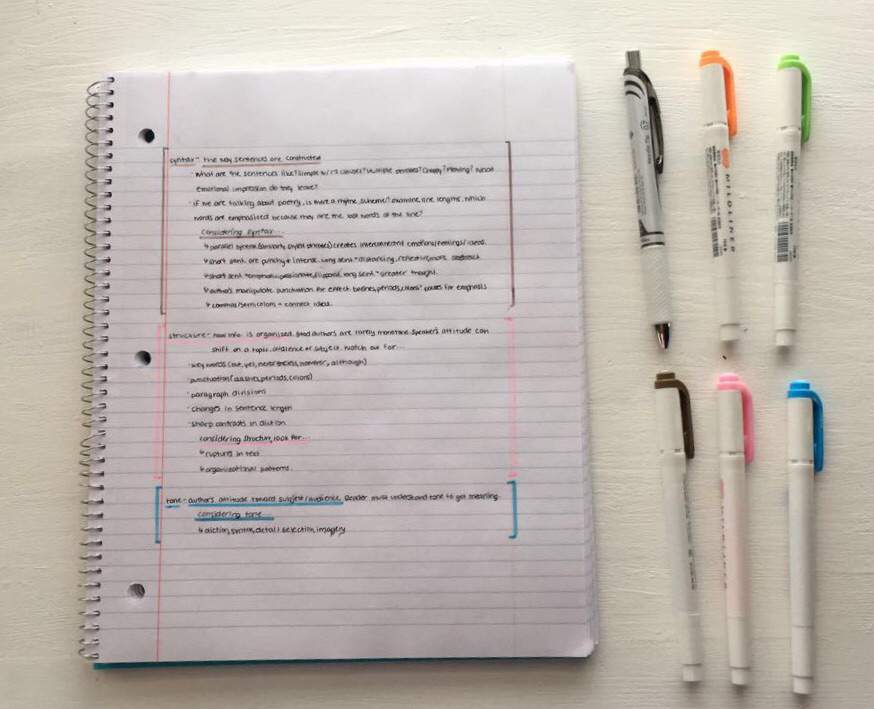 syntax - the way sentences are constructed
· What are the sentences like? Simple w/ multiple? Choppy? Flowing? What
emotional impression do they leave?
· if we are talking about poetry, is there a rhyme scheme? examine line lengths. which
words are emphasized because they are the last words of the line?
considering syntax...
↳ parallel syntax creates interconnected emotions/feelings/ideas
↳ short sent. are punchy + intense. long sent. = distancing, reflective, more abstract
↳ short sent. = emphatic, passionate, long sent. = greater thought.
↳ authors manipulate punctuation for effect. dashes, periods, colons = pauses for emphasis
↳ commas/semicolons = connect ideas.
structure - how info. is organized. Good authors are rarely monotone. Speaker's attitude can
shift on a topic, audience or subject. Watch out for...
· key words (but, yet, nevertheless, however, although)
· punctuation (dashes, periods, colons)
· paragraph divisions
· changes in sentence length
· sharp contrasts in diction
considering structure, look for...
↳ ruptures in text
↳ organizational patterns.
tone - author's attitude toward subject/audience. Reader must understand tone to get meaning.
considering tone...
↳ diction, syntax, detail selection, imagery
MILDLINER